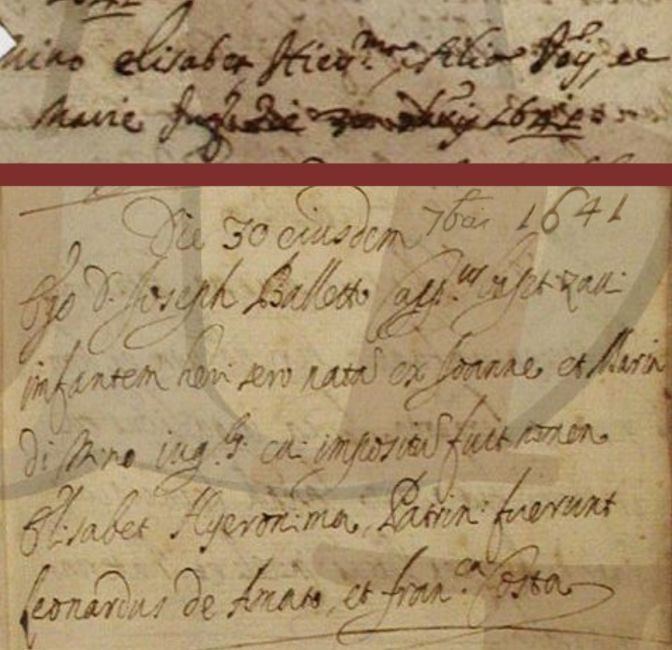 mino elisabet Hier.ma filia Joñis et
Marie Jug.
Die 30 eiusdem 7bris 1641
Ego D. Joseph Balletto bapt.
infantem heri sero natã ex Joanne et Maria
di Mino iug.bs cui impositũ fuit nomen
Elisabet Hyeronima, Patrini fuerunt
Leonardus de Amato, et Fran.ca Costa